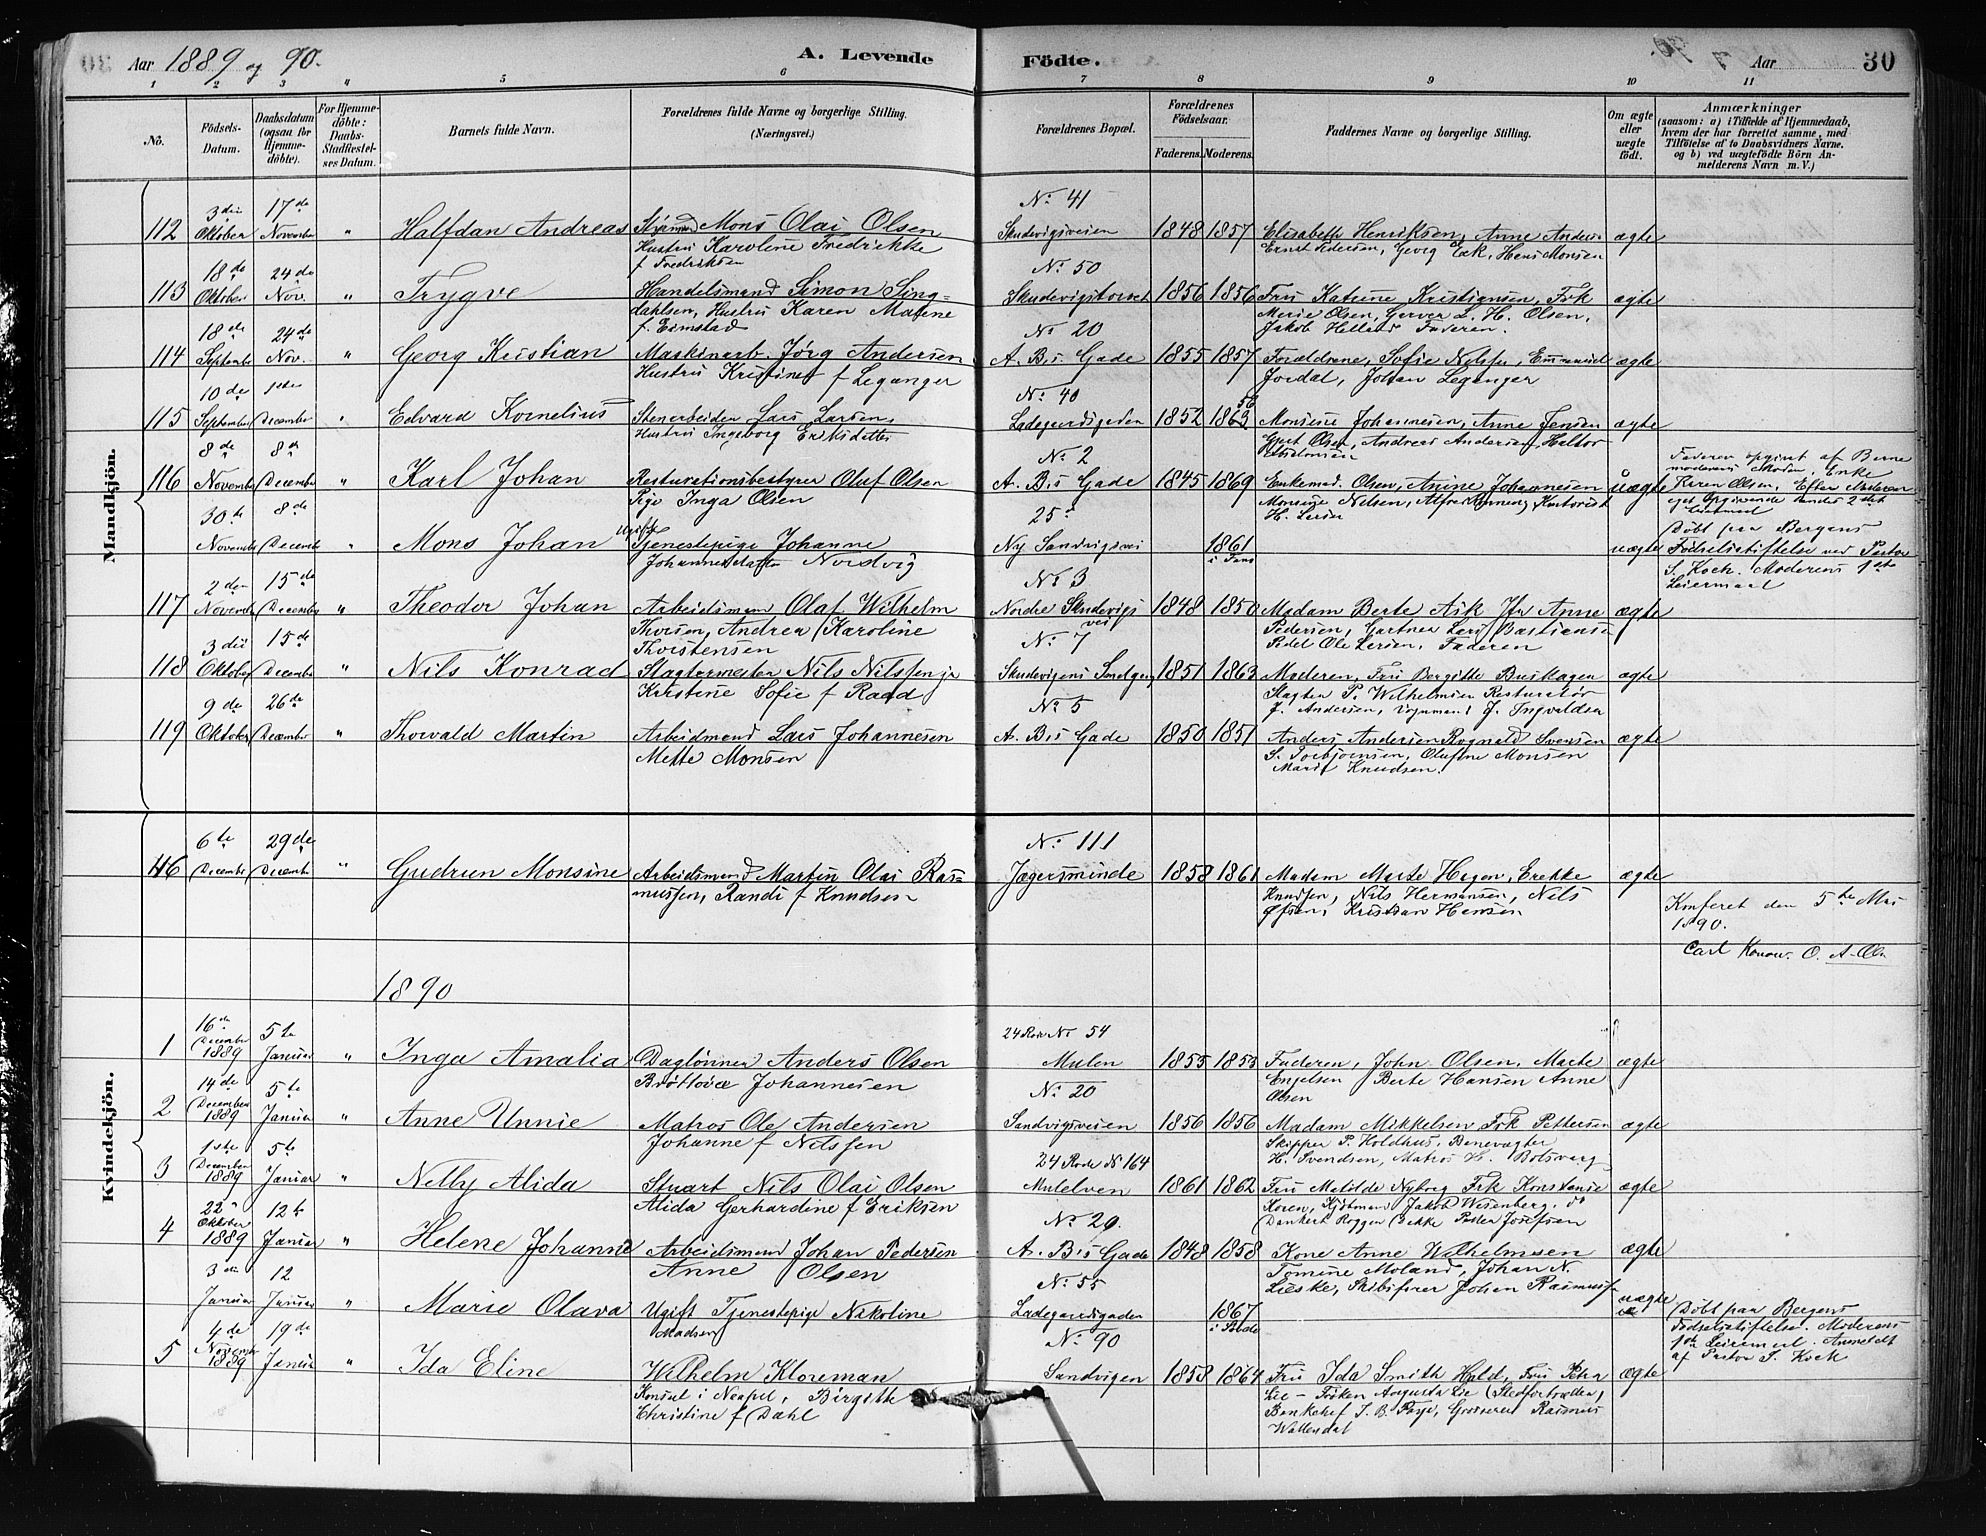 30
Aar 1889 og 90.
A. Levende Födte.
Aar 30
1 2 3 4 5 6 7 8 9 10 11
No.
Födsels-Datum.
Daabsdatum (ogsaa for Hjemmedöbte).
For Hjemmedöbte: Daabs-Stadfæstelses Datum.
Barnets fulde Navn.
Forældrenes fulde Navne og borgerlige Stilling.
(Næringsvei.)
Forældrenes Bopæl.
Forældrenes Födselsaar.
Faderens. Moderens.
Faddernes Navne og borgerlige Stilling.
Om ægte eller uægte födt.
Anmærkninger
(saasom: a) i Tilfælde af Hjemmedaab, hvem der har forrettet samme, med Tilföielse af to Daabsvidners Navne. og b) ved uægtefödte Börn Anmelderens Navn m. V.)
Mandkjön.
112 3die Oktober 17de November " Halfdan Andreas Styrmand Mons Olai Olsen No 41 Skudevigsveien 1848 1857 Elisabeth Henriksen, Anne Anders ægte
Hustru Karoline Fredrikke f Fredriksen
Georg Eek, Hans Monsen
113 18de Oktober 24de Nov. " Trygve Handelsmand Simon Sing- No 50 Skudevigstorvet 1856 1856 Fru Katrine Kristiansen, Frk ægte
dahlsen, Hustru Karen Malene f. Eimstad
Marie Olsen, Garver L. H. Olsen, Jakob Helland Faderen.
114 18de September 24de Nov. " Georg Kristian Maskinarb. Jörg Andersen No 20 A. B's Gade 1855 1857 Forældrene, Sofie Nilsen, Emmanuel ægte
Hustru Kristine f Leganger
Jordal, Johan Leganger
115 10de September 1ste December " Edvard Kornelius Stenarbeider Lars Larsen No 40 Ladegaardsgaden 1852 1863 56 Monsine Johannesen, Anne Jensen ægte
Hustru Ingeborg Eriksdatter
Olsen, Andreas Andersen, Haldor
116 8de November 8de December Karl Johan Resturationsbestyrer Oluf Olsen No 2 A. B's Gade 1845 1869 Enkemad. Olsen, Anine Johannesen uægte
Pige Inga Olsen
Monsine Nelsen, Kontorist H. Larsen
Faderen opgivet af Barnemoderens Moder, Enke Karen Olsen. Efter Moderen eget Opgivende hendes 2det Leiermaal
30te November 8de December " Mons Johan Ugift Tjenestepige Johanne 25 Ny Sandvigsvei 1861 i Fane uægte
Johannesdatter Nordvig
Döbt paa Bergens Födselsstiftelse ved Pastor S. Koch. Moderens 1ste Leiermaal
117 2den November 15de December " Theodor Johan Arbeidsmand Olaf Wilhelm No 3 Nordre Skudevigs vei 1848 1850 Madam Berte Ask Anne ægte
Thoresen, Andrea Karoline Thorstensen
Pedersen, Gartner Lars Bastiansen Pedel Ole Larsen, Faderen
118 3die Oktober 15de December " Nils Konrad Slagtermester Nils Nilssen jr No 7 Skudevigens 1851 1863 Moderen, Fru Bergitte Buskagen ægte
Kristine Sofie f Raad
Slagter P. Wilhelmsen Restauratör J. Andersen, Vognmand J. Ingvaldsen
119 9de Oktober 26de December " Thorvald Martin Arbeidsmand Lars Johannesen No 5 A. B's Gade 1850 1851 Anders Andersen Rognald Svensen ægte
Mette Monsen
S. Torbjörnsen, Olufine Monsen Marit Knudsen.
46 6te December 29de December " Gudrun Monsine Arbeidsmand Martin Olai Ras- No 111 Jægersminde 1858 1861 Madam Marte Hagen, Erekke ægte
mussen, Randi f Knudsen
Knudsen, Nils Hermansen, Nils Kristian Hansen
Konferet den 5te Mai 1890.
Carl Konow. O. A-Ols
1890
Kvindekjön.
1 16de December 1889 5te Januar " Inga Amalia Daglönner Anders Olsen 24 Rode No 54 Mulen 1855 1853 Faderen, John Olsen. Marte ægte
Johannesen
Engelsen Berte Hansen Anne Olsen
2 14de December 1889 5te Januar " Anne Unnie Matros Ole Andersen No 20 Sandvigsveien 1856 1856 Madam Mikkelsen Frk Pettersen ægte
Johanne f Nilssen
Skipper P. Holdhus, Banevægter H. Svendsen, Matros H. Botsvarg
3 1ste December 1889 5te Januar " Nelly Alida Stuart Nils Olai Olsen 24 Rode No 164 Mulelven 1861 1862 Fru Matilde Nyborg Frk Konstanse ægte
Alida Gerhardine f Eriksen
Koren, Kjöbmand Jakob Wesenberg, do Dankert Roggen Dekke Peder Josefsen
4 22 Oktober 1889 12te Januar " Helene Johanne Arbeidsmand Johan Pedersen No 29. A. B's Gade 1848 1858 Kone Anne Wilhelmsen ægte
Anne Olsen
Tomine Moland, Johan N. Lieske, Skibsförer Johan Rasmussen
3die Januar 12 Januar " Marie Olava Ugift Tjenestepige Nikoline No 55 Ladegaardsgaden 1867 uægte
Madsen
Döbt paa Bergens Födselsstiftelse. Moderens 1ste Leiermaal. Anmeldt af Pastor S. Koch
5 4de November 1889 19de Januar " Ida Eline Wilhelm Kloreman No 90 Sandvigen 1858 1864 Fru Ida Smith Hald, Fru Petra ægte
Konsul i Neapel, Birgith Christine f Dahl
Lie - Fröken Augusta Lie (Stedfortræder, Bankchef J. B. Faye, Grosserer Rasmus Wallendal